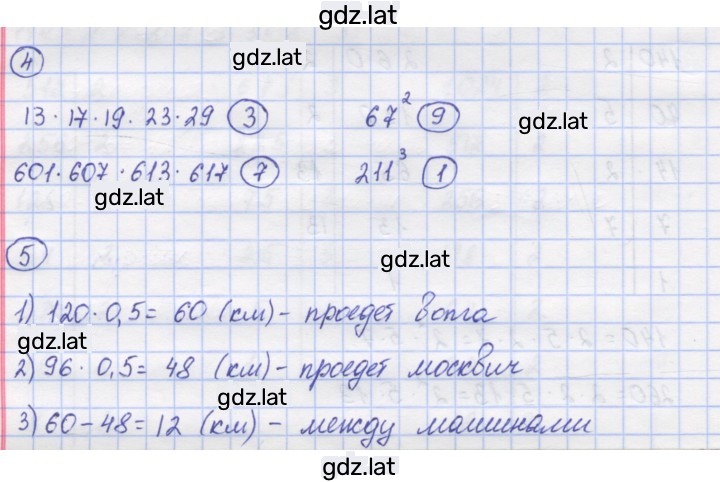 gdz.lat
gdz.lat
4
13 · 17 · 19 · 23 · 29 3 67² 9
gdz.lat
601 · 607 · 613 · 617 7 211³ 1
gdz.lat
5
gdz.lat
1) 120 · 0,5 = 60 (км) - проедет Волга
gdz.lat
2) 96 · 0,5 = 48 (км) - проедет москвич
gdz.lat
3) 60 - 48 = 12 (км) - между машинами
gdz.lat